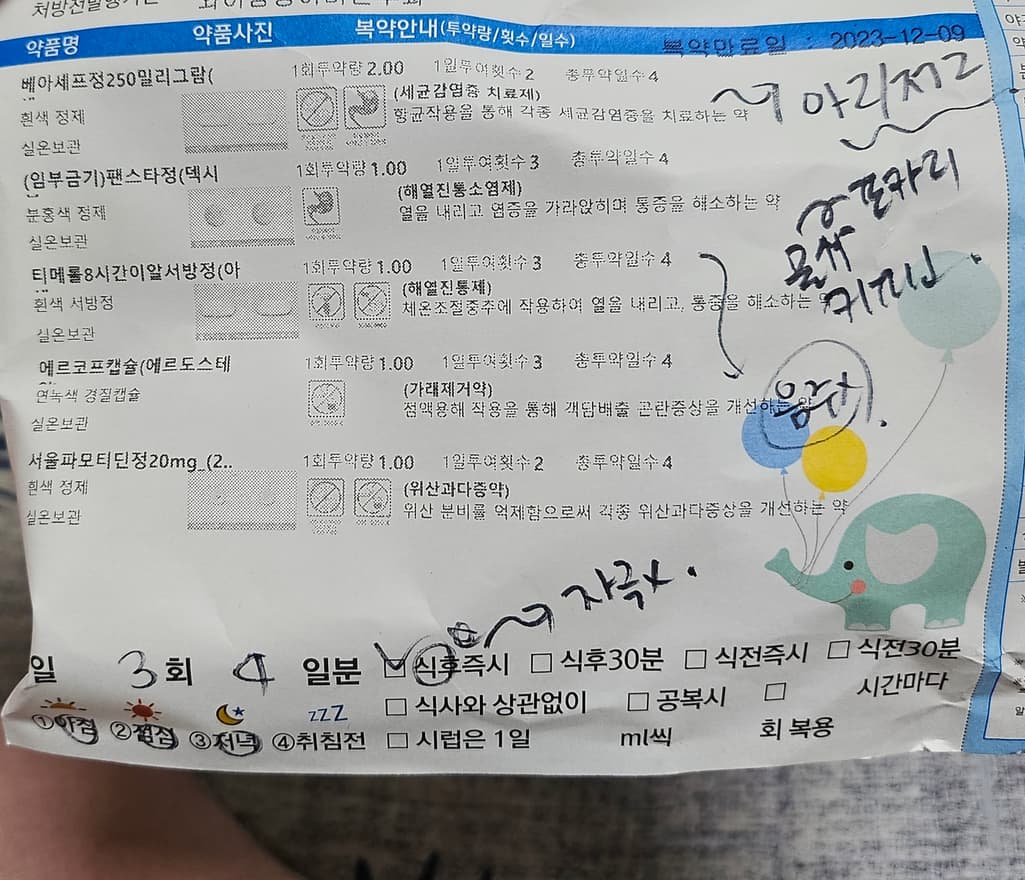 처방전발행기관
약품명 약품사진 복약안내(투약량/횟수/일수) 복약만료일 : 2023-12-09
베아세프정250밀리그람( 1회투약량 2.00 1일투여횟수 2 총투약일수 4
흰색 정제 (세균감염증 치료제)
실온보관 항균작용을 통해 각종 세균감염증을 치료하는 약
아리저2
(임부금기)팬스타정(덱시 1회투약량 1.00 1일투여횟수 3 총투약일수 4
분홍색 정제 (해열진통소염제)
실온보관 열을 내리고 염증을 가라앉히며 통증을 해소하는 약
포카리
티메롤8시간이알서방정(아 1회투약량 1.00 1일투여횟수 3 총투약일수 4
흰색 서방정 (해열진통제)
실온보관 체온조절중추에 작용하여 열을 내리고, 통증을 해소하는 약
에르코프캡슐(에르도스테 1회투약량 1.00 1일투여횟수 3 총투약일수 4
연녹색 경질캡슐 (가래제거약)
실온보관 점액용해 작용을 통해 객담배출 곤란증상을 개선하는 약
음주x.
서울파모티딘정20mg_(2.. 1회투약량 1.00 1일투여횟수 2 총투약일수 4
흰색 정제 (위산과다증약)
실온보관 위산 분비를 억제함으로써 각종 위산과다증상을 개선하는 약
자극x.
일 3 회 4 일분 ☑ 식후즉시 □ 식후30분 □ 식전즉시 □ 식전30분
□ 식사와 상관없이 □ 공복시 □ 시간마다
①아침 ②점심 ③저녁 ④취침전 □ 시럽은 1일 ml씩 회 복용